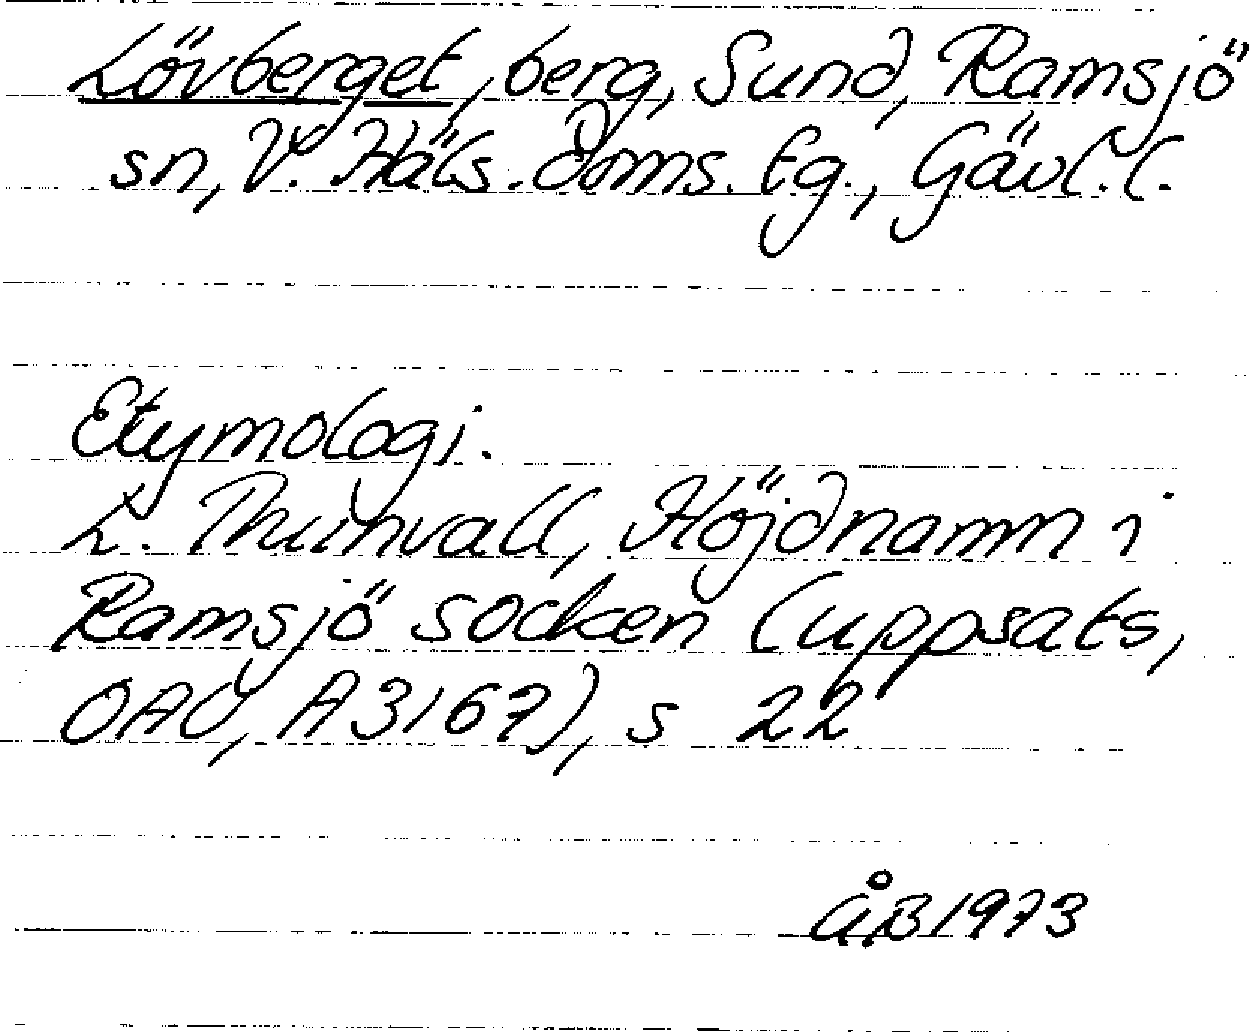 Lövberget, berg, Sund, Ramsjö
sn, V. Häls. doms. tg., Gävl. l.
Etymologi.
L. Thunvall, Höjdnamn i
Ramsjö socken (uppsats,
OAU, A 3167), s 22
ÅB 1973